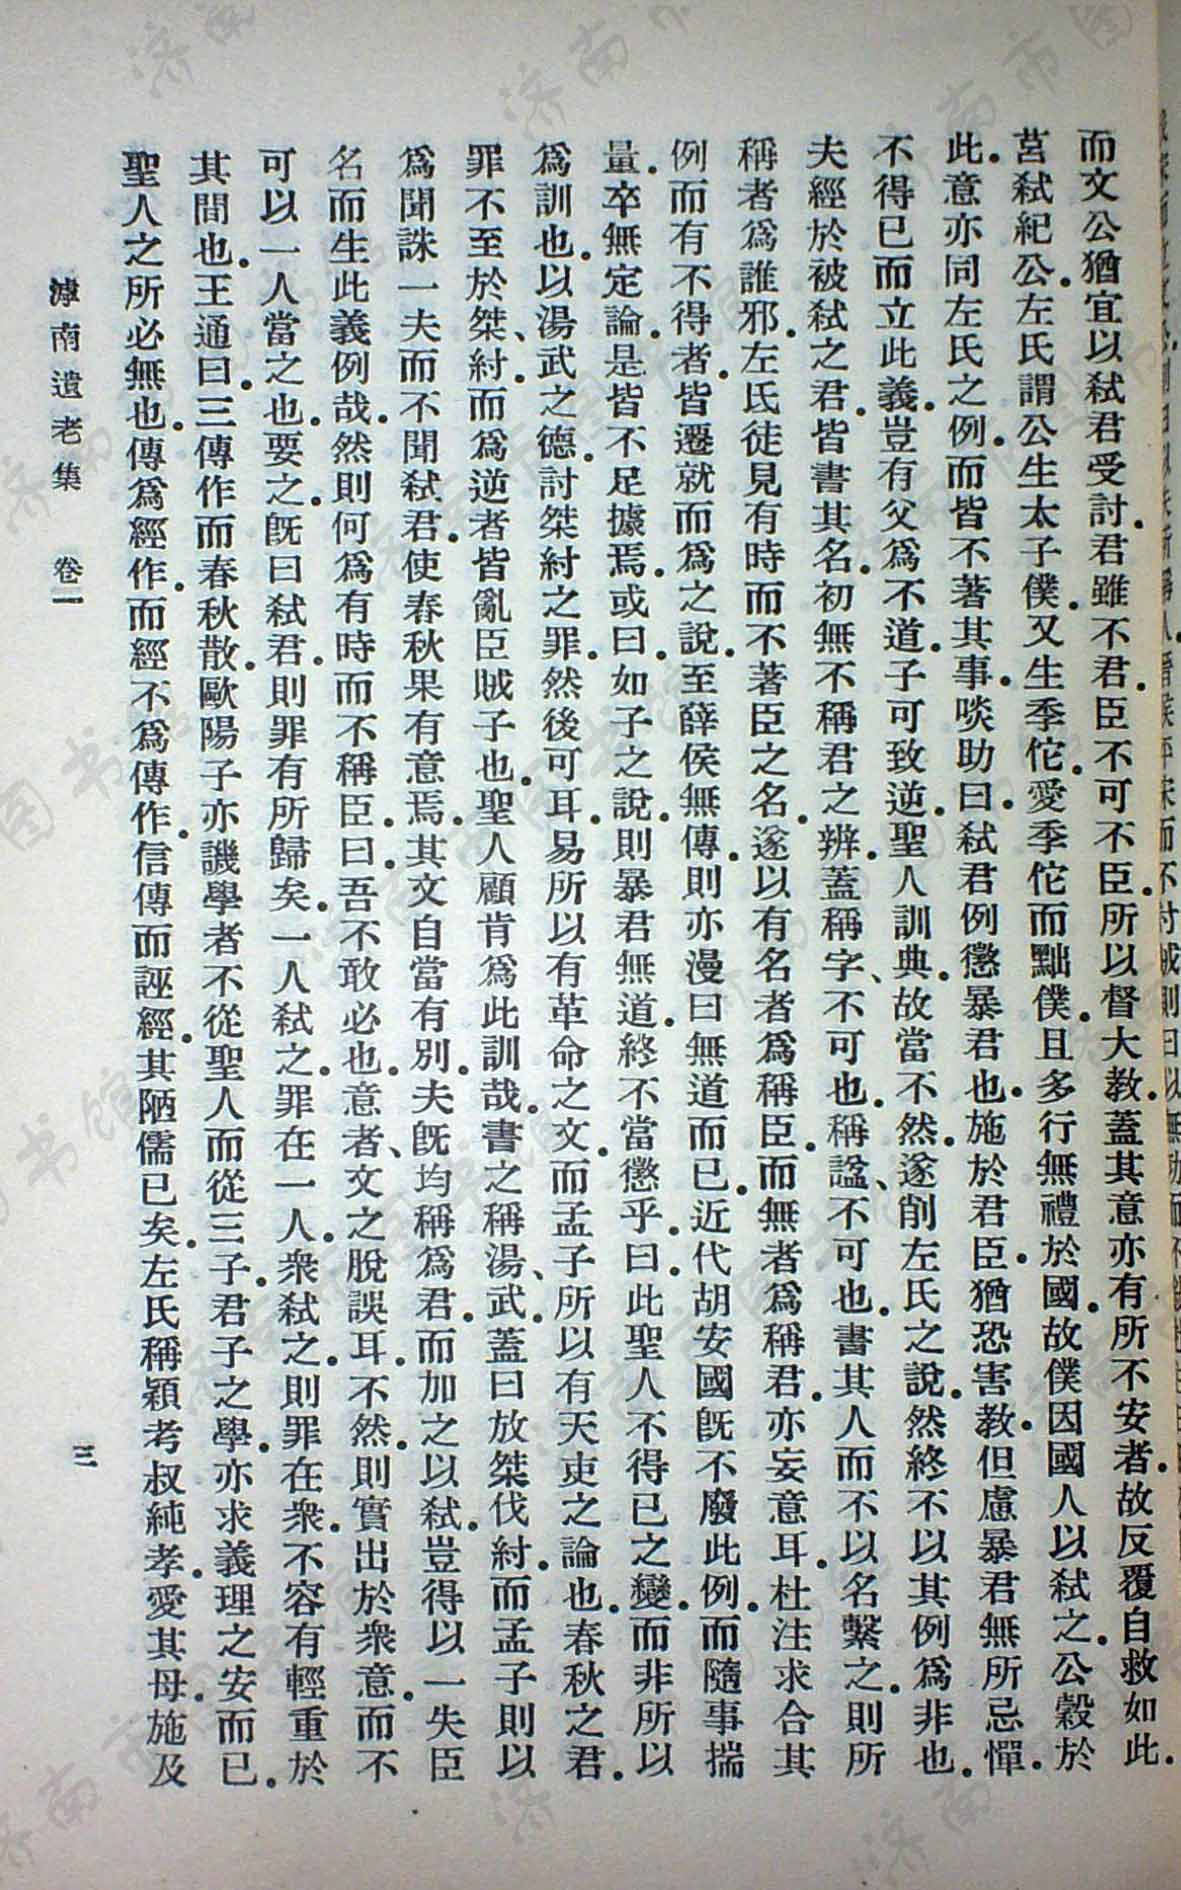 而文公猶宜以弒君受討.君雖不君.臣不可不臣.所以督大教.蓋其意亦有所不安者.故反覆自救如此.
莒弒紀公.左氏謂公生太子僕.又生季佗.愛季佗而黜僕.且多行無禮於國.故僕因國人以弒之.公穀於
此.意亦同左氏之例.而皆不著其事.啖助曰.弒君例懲暴君也.施於君臣.猶恐害教.但慮暴君無所忌憚.
不得已而立此義.豈有父爲不道.子可致逆.聖人訓典.故當不然.遂削左氏之說.然終不以其例爲非也.
夫經於被弒之君.皆書其名.初無不稱君之辨.蓋稱字、不可也.稱諡、不可也.書其人而不以名繫之.則所
稱者爲誰邪.左氏徒見有時而不著臣之名.遂以有名者爲稱臣.而無者爲稱君.亦妄意耳.杜注求合其
例而有不得者.皆遷就而爲之說.至薛侯無傳.則亦漫曰無道而已.近代胡安國既不廢此例.而隨事揣
量.卒無定論.是皆不足據焉.或曰.如子之說.則暴君無道.終不當懲乎.曰.此聖人不得已之變.而非所以
爲訓也.以湯武之德.討桀紂之罪.然後可耳.易所以有革命之文.而孟子所以有天吏之論也.春秋之君.
罪不至於桀、紂.而爲逆者皆亂臣賊子也.聖人顧肯爲此訓哉.書之稱湯、武.蓋曰放桀伐紂.而孟子則以
爲聞誅一夫而不聞弒君.使春秋果有意焉.其文自當有別.夫既均稱爲君.而加之以弒.豈得以一失臣
名而生此義例哉.然則何爲有時而不稱臣.曰.吾不敢必也.意者、文之脫誤耳.不然.則實出於衆意.而不
可以一人當之也.要之.既曰弒君.則罪有所歸矣.一人弒之.罪在一人.衆弒之.則罪在衆.不容有輕重於
其間也.王通曰.三傳作而春秋散.歐陽子亦譏學者不從聖人而從三子.君子之學.亦求義理之安而已.
聖人之所必無也.傳爲經作.而經不爲傳作.信傳而誣經.其陋儒已矣.左氏稱潁考叔純孝.愛其母.施及
滹南遺老集　卷一
三